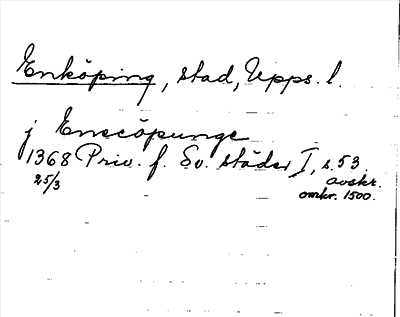 Enköping, stad, Upps. l.
j Enecöpunge
1368 Priv. f. Sv. städer I, s. 53.
25/3 avskr.
omkr. 1500.